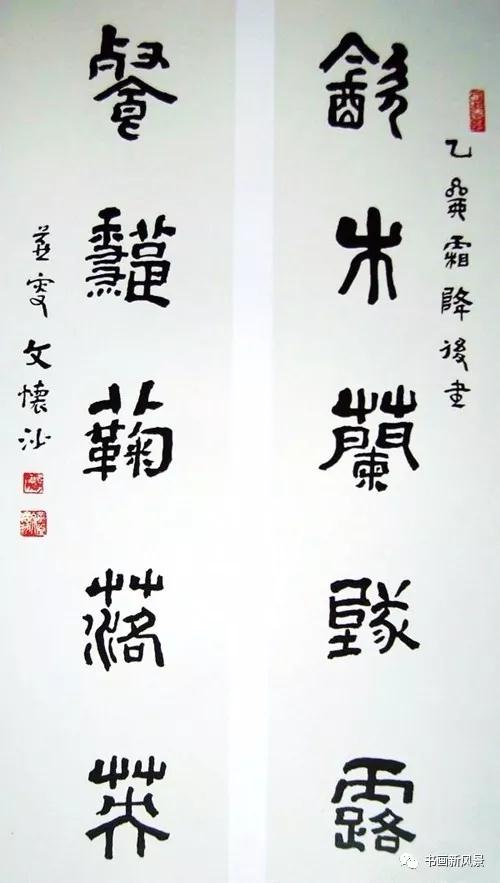 乙霜降後書
飲木蘭墜露
餐秋蘜落英
燕叟文懷沙
书画新风景